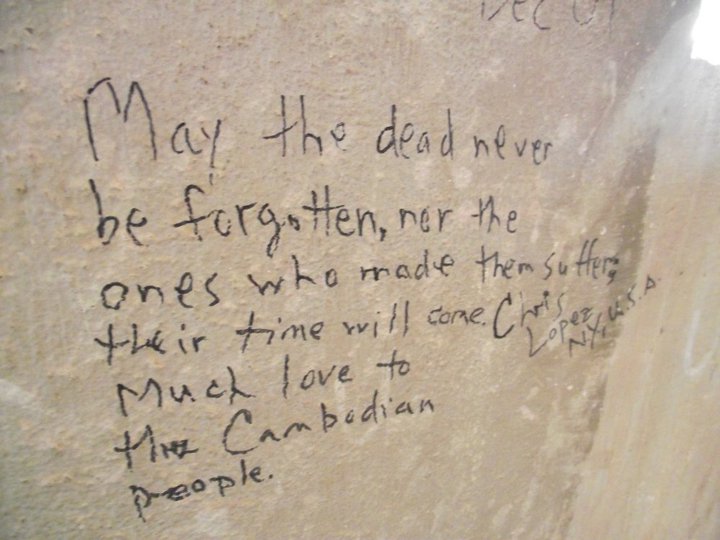 Dec 01
May the dead never
be forgotten, nor the
ones who made them suffer,
their time will come. Chris
Lopez
NY, U.S.A.
Much love to
the Cambodian
people.